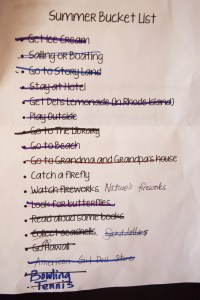 Summer Bucket List
• Get Ice Cream
• Sailing or Boating
• Go to Story Land
• Stay at Hotel
• Get Del's Lemonade (in Rhode Island)
• Play Outside
• Go to The Library
• Go to Beach
• Go to Grandma and Grandpa's house
• Catch a firefly
• Watch fireworks Nature's fireworks
• Look for butterflies
• Read aloud some books
• Collect seashells Sand dollars
• Go
• American Girl Doll Store
Bowling
Tennis